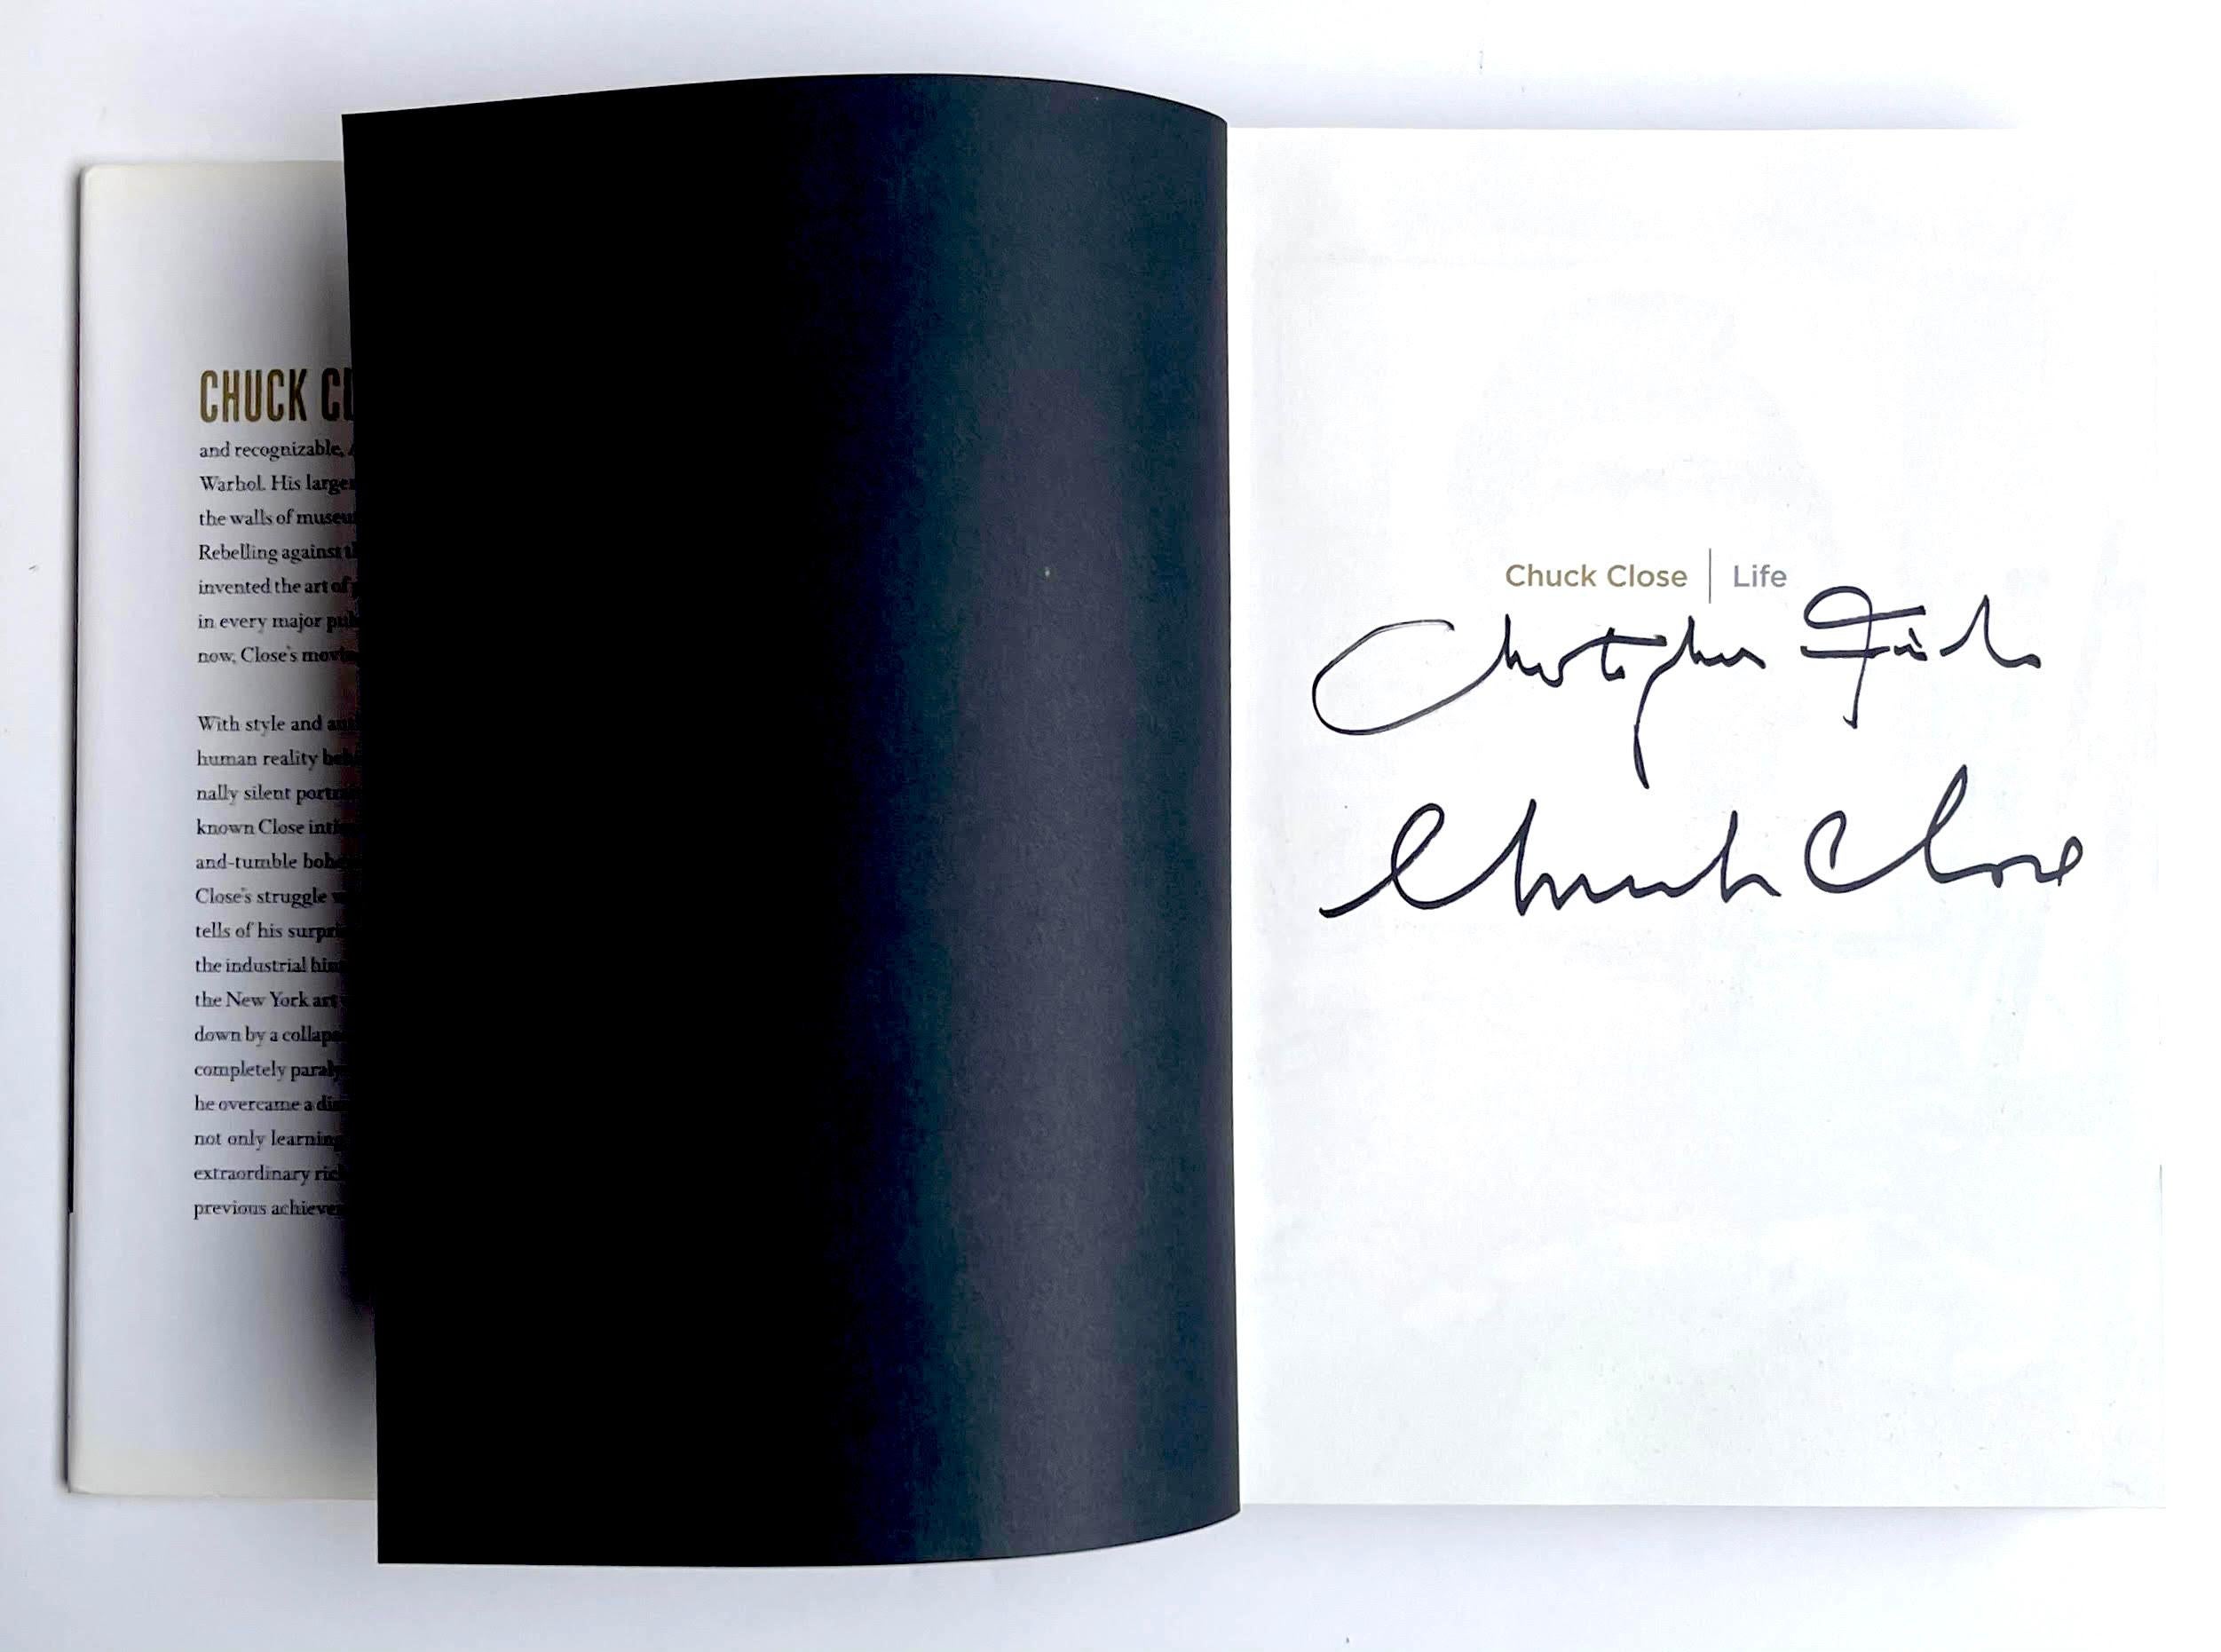 CHUCK CL
and recognizable,
Warhol. His large
the walls of museu
Rebelling against
invented the art of
in every major
now, Close's
With style and
human reality
nally silent
known Close
and-tumble
Close's struggle
tells of his
the industrial
the New York art
down by a
completely
he overcame a
not only learning
extraordinary
previous
Chuck Close | Life
Christopher Finch
Chuck Close